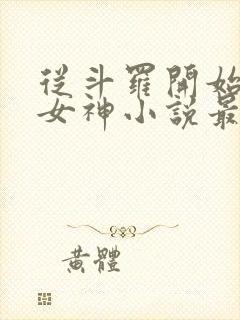 從斗羅開始
女神小說最
黃體